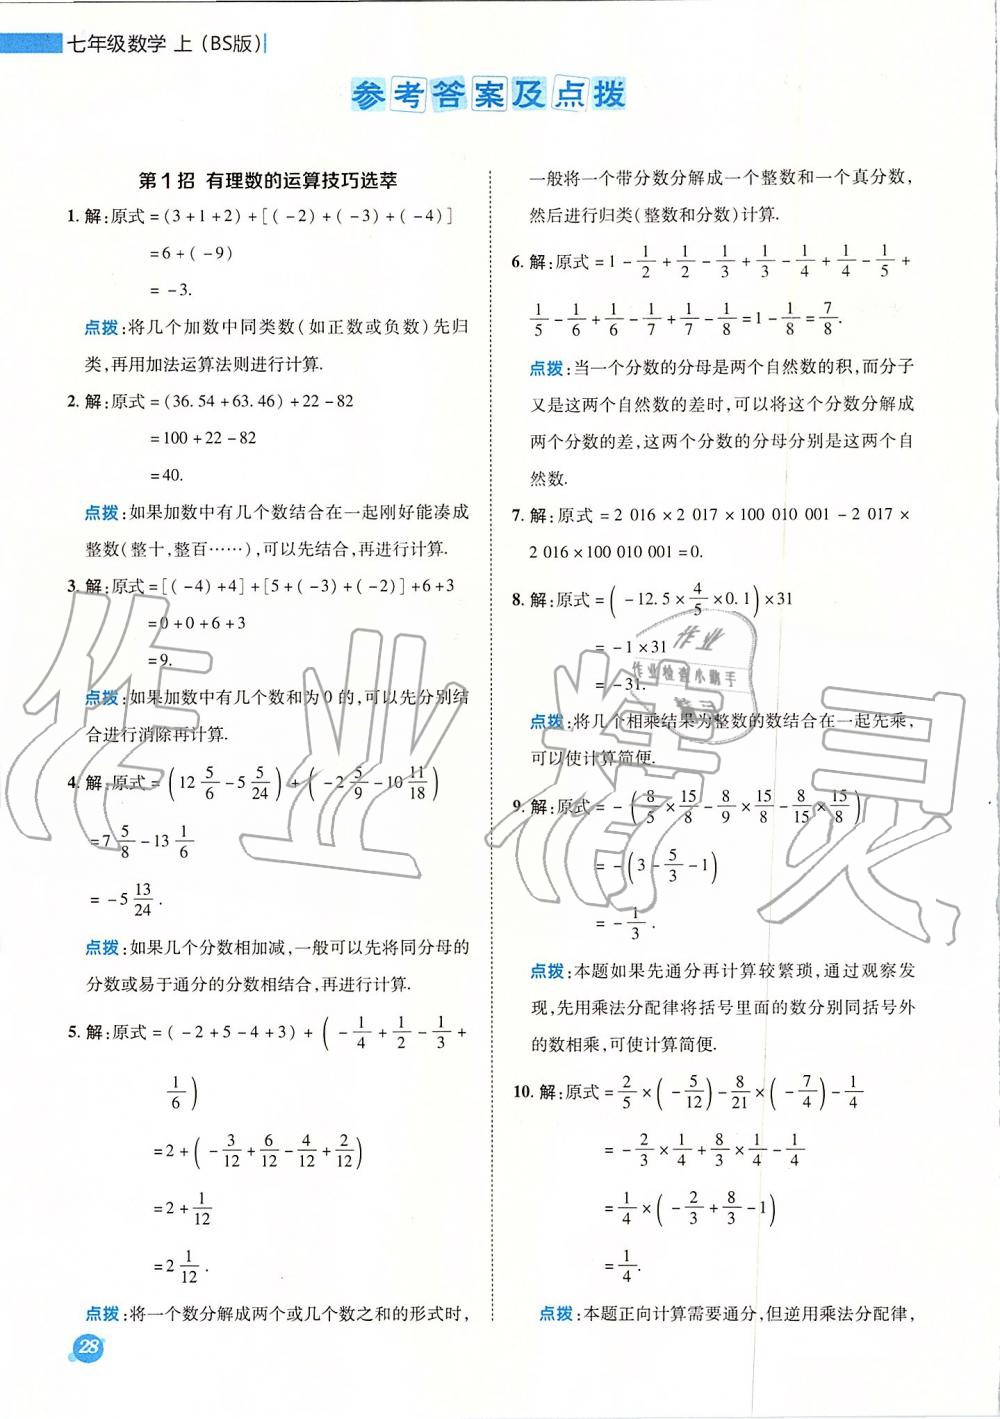 七年级数学 上（BS版）
参考答案及点拨
第1招 有理数的运算技巧选萃
1. 解:原式=(3+1+2)+[(-2)+(-3)+(-4)]
=6+(-9)
=-3.
点拨:将几个加数中同类数(如正数或负数)先归
类,再用加法运算法则进行计算.
2. 解:原式=(36.54+63.46)+22-82
=100+22-82
=40.
点拨:如果加数中有几个数结合在一起刚好能凑成
整数(整十,整百……),可以先结合,再进行计算.
3. 解:原式=[(-4)+4]+[5+(-3)+(-2)]+6+3
=0+0+6+3
=9.
点拨:如果加数中有几个数和为0的,可以先分别结
合进行消除再计算.
4. 解:原式=(12 5/6-5 5/24)+(-2 5/9-10 11/18)
=7 5/8-13 1/6
=-5 13/24.
点拨:如果几个分数相加减,一般可以先将同分母的
分数或易于通分的分数相结合,再进行计算.
5. 解:原式=(-2+5-4+3)+(-1/4+1/2-1/3+
1/6)
=2+(-3/12+6/12-4/12+2/12)
=2+1/12
=2 1/12.
点拨:将一个数分解成两个或几个数之和的形式时,
28
一般将一个带分数分解成一个整数和一个真分数,
然后进行归类(整数和分数)计算.
6. 解:原式=1-1/2+1/2-1/3+1/3-1/4+1/4-1/5+
1/5-1/6+1/6-1/7+1/7-1/8=1-1/8=7/8.
点拨:当一个分数的分母是两个自然数的积,而分子
又是这两个自然数的差时,可以将这个分数分解成
两个分数的差,这两个分数的分母分别是这两个自
然数.
7. 解:原式=2 016×2 017×100 010 001-2 017×
2 016×100 010 001=0.
8. 解:原式=(-12.5×4/5×0.1)×31
=-1×31
=-31.
点拨:将几个相乘结果为整数的数结合在一起先乘,
可以使计算简便.
9. 解:原式=-(8/5×15/8-8/9×15/8-8/15×15/8)
=-(3-5/3-1)
=-1/3.
点拨:本题如果先通分再计算较繁琐,通过观察发
现,先用乘法分配律将括号里面的数分别同括号外
的数相乘,可使计算简便.
10. 解:原式=2/5×(-5/12)-8/21×(-7/4)-1/4
=-2/3×1/4+8/3×1/4-1/4
=1/4×(-2/3+8/3-1)
=1/4.
点拨:本题正向计算需要通分,但逆用乘法分配律,
作业精灵
作业
作业检查小助手